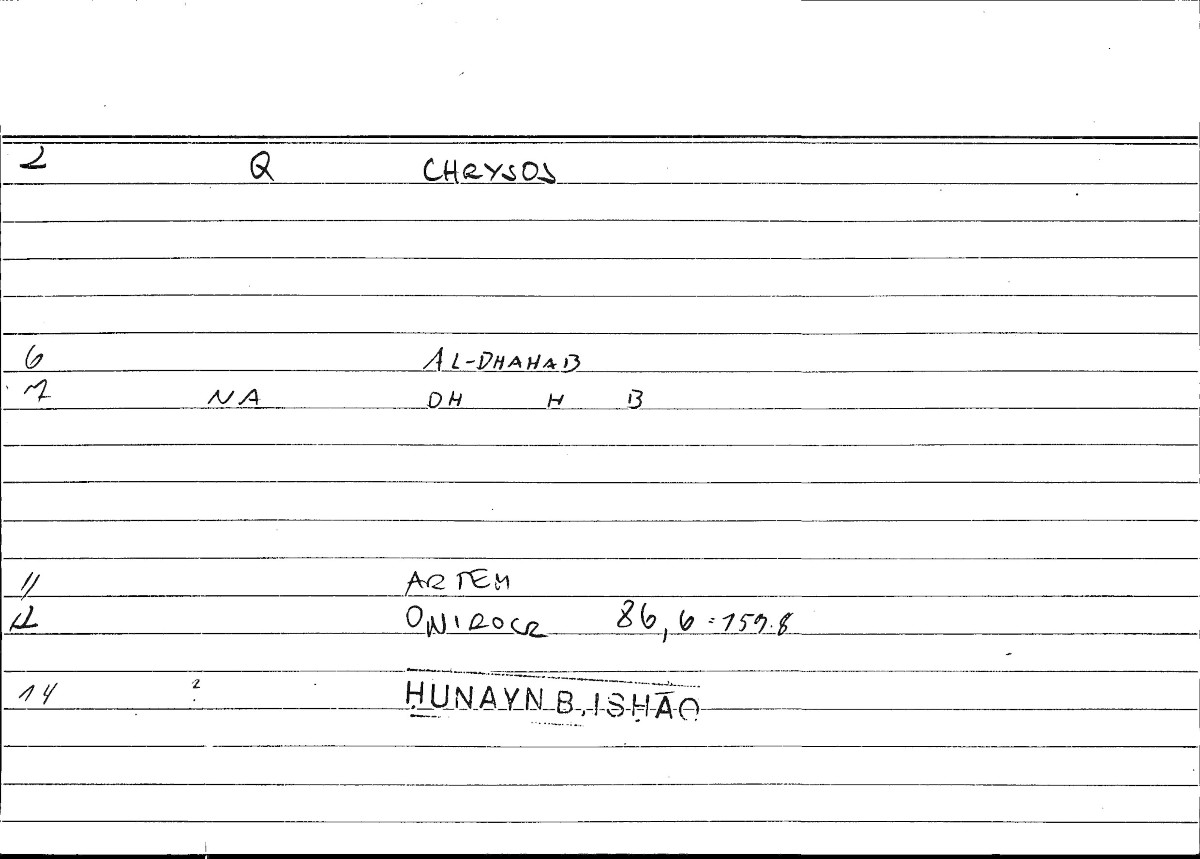 2 Q CHRYSOS
6 AL-DHAHAB
7 NA DH H B
11 ARTEM
12 ONIROCR 86,6=159.8
14 ? ḤUNAYN B. ISḤĀQ